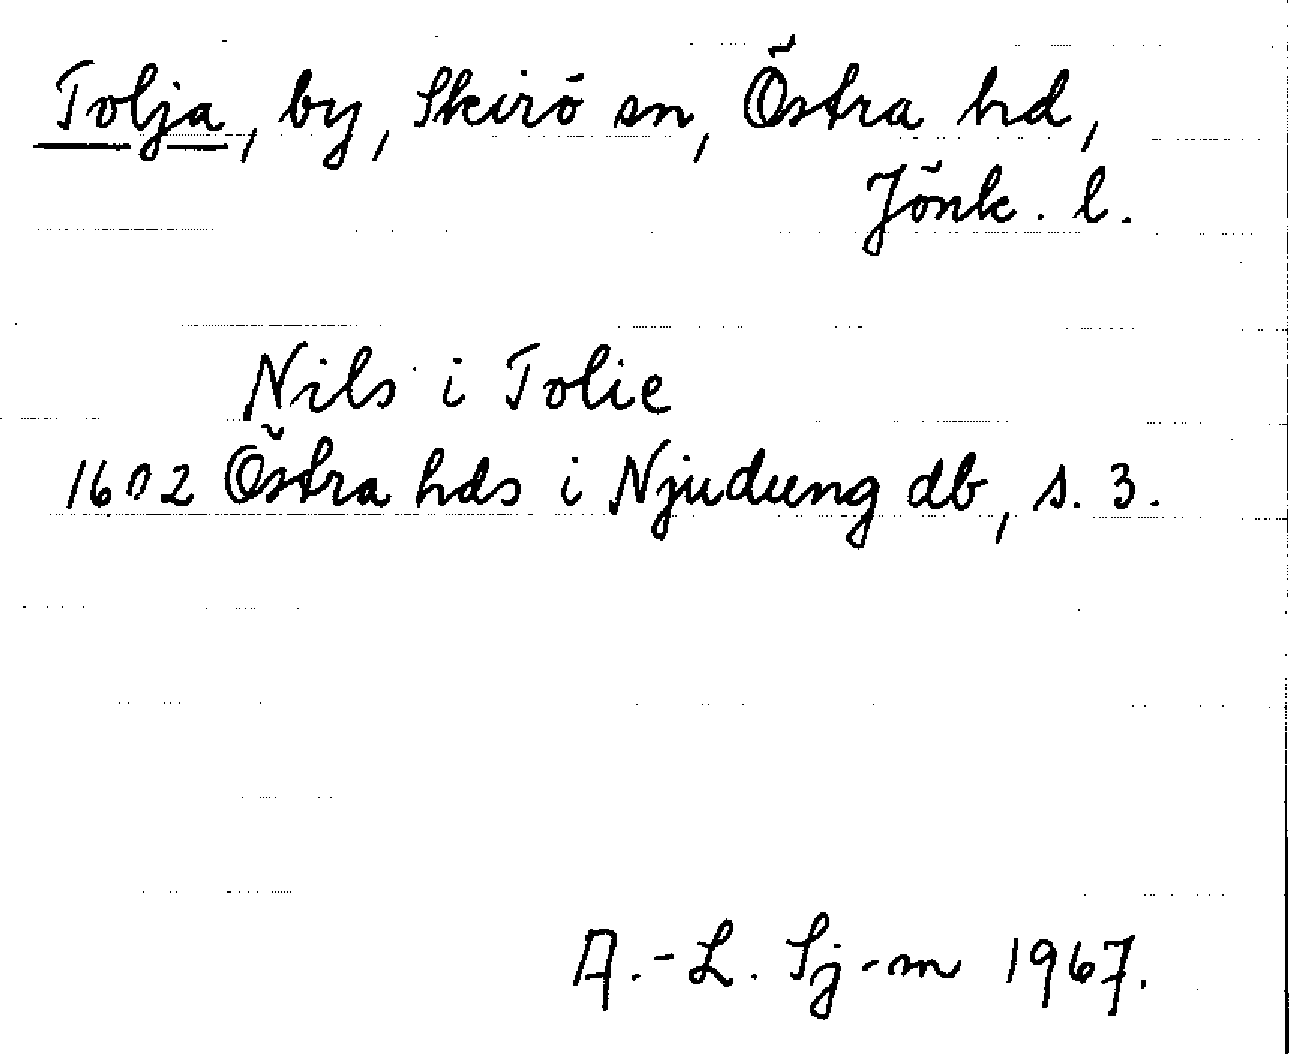 Tolja, by, Skirö sn, Östra hd,
Jönk. l.
Nils i Tolie
1602 Östra hds i Njudung db, s. 3.
A.-L. Sj-m 1967.